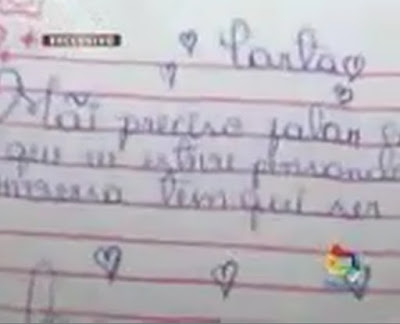 EXCLUSIVO
Carla
Mãi preciso falar
que eu estive pensando
tem que ser